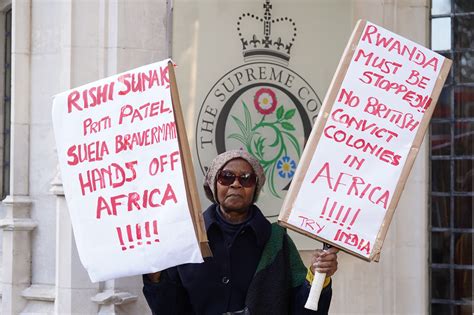 RISHI SUNAK
PRITI PATEL
SUELA BRAVERMAN
HANDS OFF
AFRICA
!!!!
THE SUPREME COU
RWANDA
MUST BE
STOPPED!!
NO BRITISH
CONVICT
COLONIES
IN
AFRICA
!!!!!
TRY INDIA